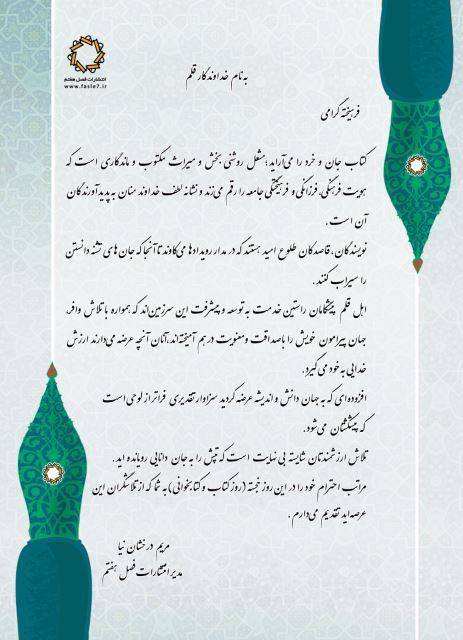 انتشارات فصل هفتم
www.fasle7.ir
به نام خداوندگار قلم
فرهیخته گرامی
کتاب جان و خرد را می‌آراید؛ مشعل روشنی بخش و میراث مکتوب و ماندگاری است که
هویت فرهنگی، فرزانگی و فرهیختگی جامعه را رقم می‌زند و نشانه لطف خداوند منان به پدیدآورندگان
آن است.
نویسندگان، قاصدکان طلوع امید هستند که در مدار رویدادها می‌کاوند تا آنجا که جان های تشنه دانستن
را سیراب کنند.
اهل قلم پیشگامان راستین خدمت به توسعه و پیشرفت این سرزمین‌اند که همواره با تلاش وافر،
جهان پیرامون خویش را با صداقت و معنویت در هم آمیخته‌اند، آنان آنچه عرضه می‌دارند ارزش
خدایی به خود می گیرد.
افزوده‌ای که به جهان دانش و اندیشه عرضه کردید سزاوار تقدیری فراتر از لوحی است
که پیشکشتان می‌شود.
تلاش ارزشمندتان شایسته بی نهایت است که تپش را به جان دانایی رویانده اید.
مراتب احترام خود را در این روز خجسته (روز کتاب و کتابخوانی) به شما که از تلاشگران این
عرصه‌اید تقدیم می‌دارم.
مریم درخشان نیا
مدیر انتشارات فصل هفتم